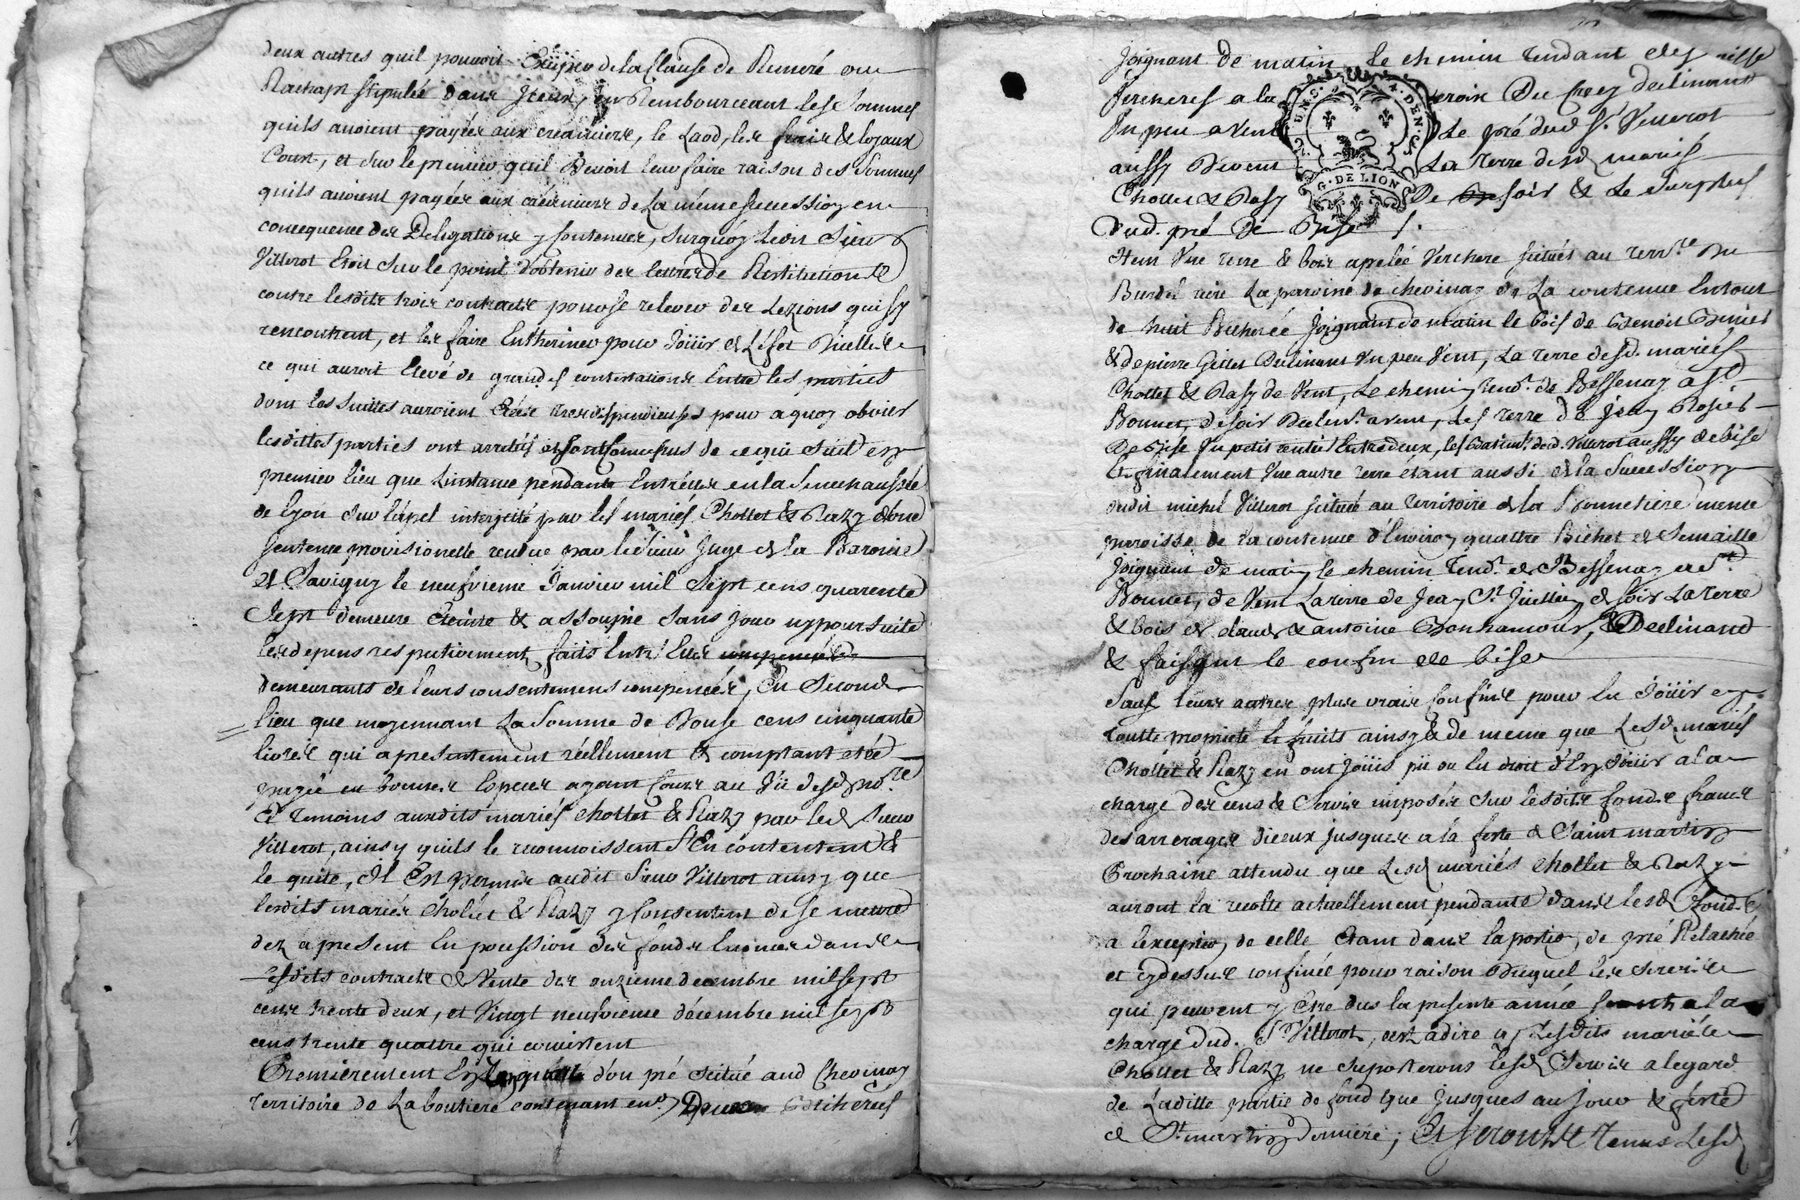 deux autres quil pouvoit Exiger de la Clause de Remeré ou
Rachapt stipulée dans Iceux, en Rembourceant les sommes
quils avoient payées aux creanciers, le Laod, les frais & loyaux
Cout, et sur le premier quil Devoit leur faire raison des Sommes
quils avoient payées aux créanciers de la méme succession en
consequence des Deligations y contenues, surquoy ledit Sieur
Villerot Etoit sur le point d'obtenir des lettres de Restitution
contre lesdits trois contracts pour se relever des Lezions qui sy
rencontrent, et les faire Entheriner pour Joüir
ce qui auroit Elevé de grandes contestations Entre les parties
dont les suittes auroient Etées tres dispendieuses pour a quoy obvier
lesdittes parties ont arretés et sont convenus de ce qui suit en
premier lieu que L'instance pendante Entr'elles en la Senechaussée
de Lyon sur l'apel interjetté par les mariés Chollet & Razy d'une
sentence provisionelle rendue par le sieur Juge de la Baronie
de Savigny le neufvieme Janvier mil Sept cens quarente
Sept demeure Eteinte & assoupie sans pour
les depens respectivement faits Entr'Elles compencés
demeurants de leurs consentemens compencés, En Second
lieu que moyennant La Somme de Douse cens cinquante
livres qui a presentement réellement & comptant etée
payée en bonnes Especes ayant Cours au Vû desd no.re
Et temoins auxdits mariés Chollet & Razy par led Sieur
Villerot, ainsy quils le reconnoissent S'En contentent &
le quite, Il Est permis audit Sieur Villerot ainsy que
lesdits mariés Chollet & Razy y consentent de se mettre
dez a present En possession des fonds Enoncés dans
lesdits contracts de Vente des onzieme decembre mil sept
cens trente deux, et Vingt neufvieme décembre mil sept
cens trente quattre qui consistent
Premièrement En d'un pré situé aud Chevinay
territoire de La boutiere contenant env.on Deux Bicherées
Joignant de matin le chemin tendant des
Vercheres a la croix Du Crey declinant
Un peu a Vent Le pré dud S.r Villerot
aussy De vent La Terre desd mariés
Chollet & Rasy De soir & Le surplus
Dud. pré De Bise
Item Une terre & bois apelée Verchere située au terr.re du
Burdel rière La paroisse de Chevinay de La contenue Entout
de huit Bicherée Joignant de matin le bois de Benoit
& de pierre Gillet Declinant Un peu Vent, La terre desd. mariés
Chollet & Rasy de Vent, Le chemin tend.t de Bessenay a St.
Bonnet, de soir Declin.t a vent, Les terre de Jean Rosier
De Bise Un petit sentier Entredeux, les Batiments dud. Villerot aussy de bise
Et finalement Une autre terre etant aussi de la Succession
dudit michel Villerot située au territoire de la Bonnetiere meme
paroisse de la contenue d'Environ quattre Bichet de Semaille
Joignant de matin le chemin Tend.t de Bessenay a St.
Bonnet, de Vent La terre de Jean St. Jullien de soir La terre
& bois de claude & antoine Bonhamour, & Declinant
& faisant le confin de bise
Sauf leurs autres plus vrais Confins pour En Joüir en
toutte proprieté & fruits ainsy & de meme que Lesd. mariés
Chollet & Razy en ont joüis pû ou Eu droit d'En Joüir a la
charge des cens & Servis imposés sur lesdits fonds francs
des arrerages diceux jusques a la fette de Saint martin
Prochaine attendu que Lesd mariés Chollet & Razy
auront la recolte actuellement pendante dans lesd fonds
a lexception, de celle Etant dans la portion de pré Relachée
et cydessus confinée pour raison Duquel les Servis
qui peuvent y Etre dus la presente année seront a la
charge dud. Sr. Villerot, cest a dire que lesdits mariés
Chollet & Razy ne suporterons lesd Servis a legard
de Laditte partie de fond que jusques au jour & fette
de St. martin derniere; Et seront tenus lesd
G. DE LION